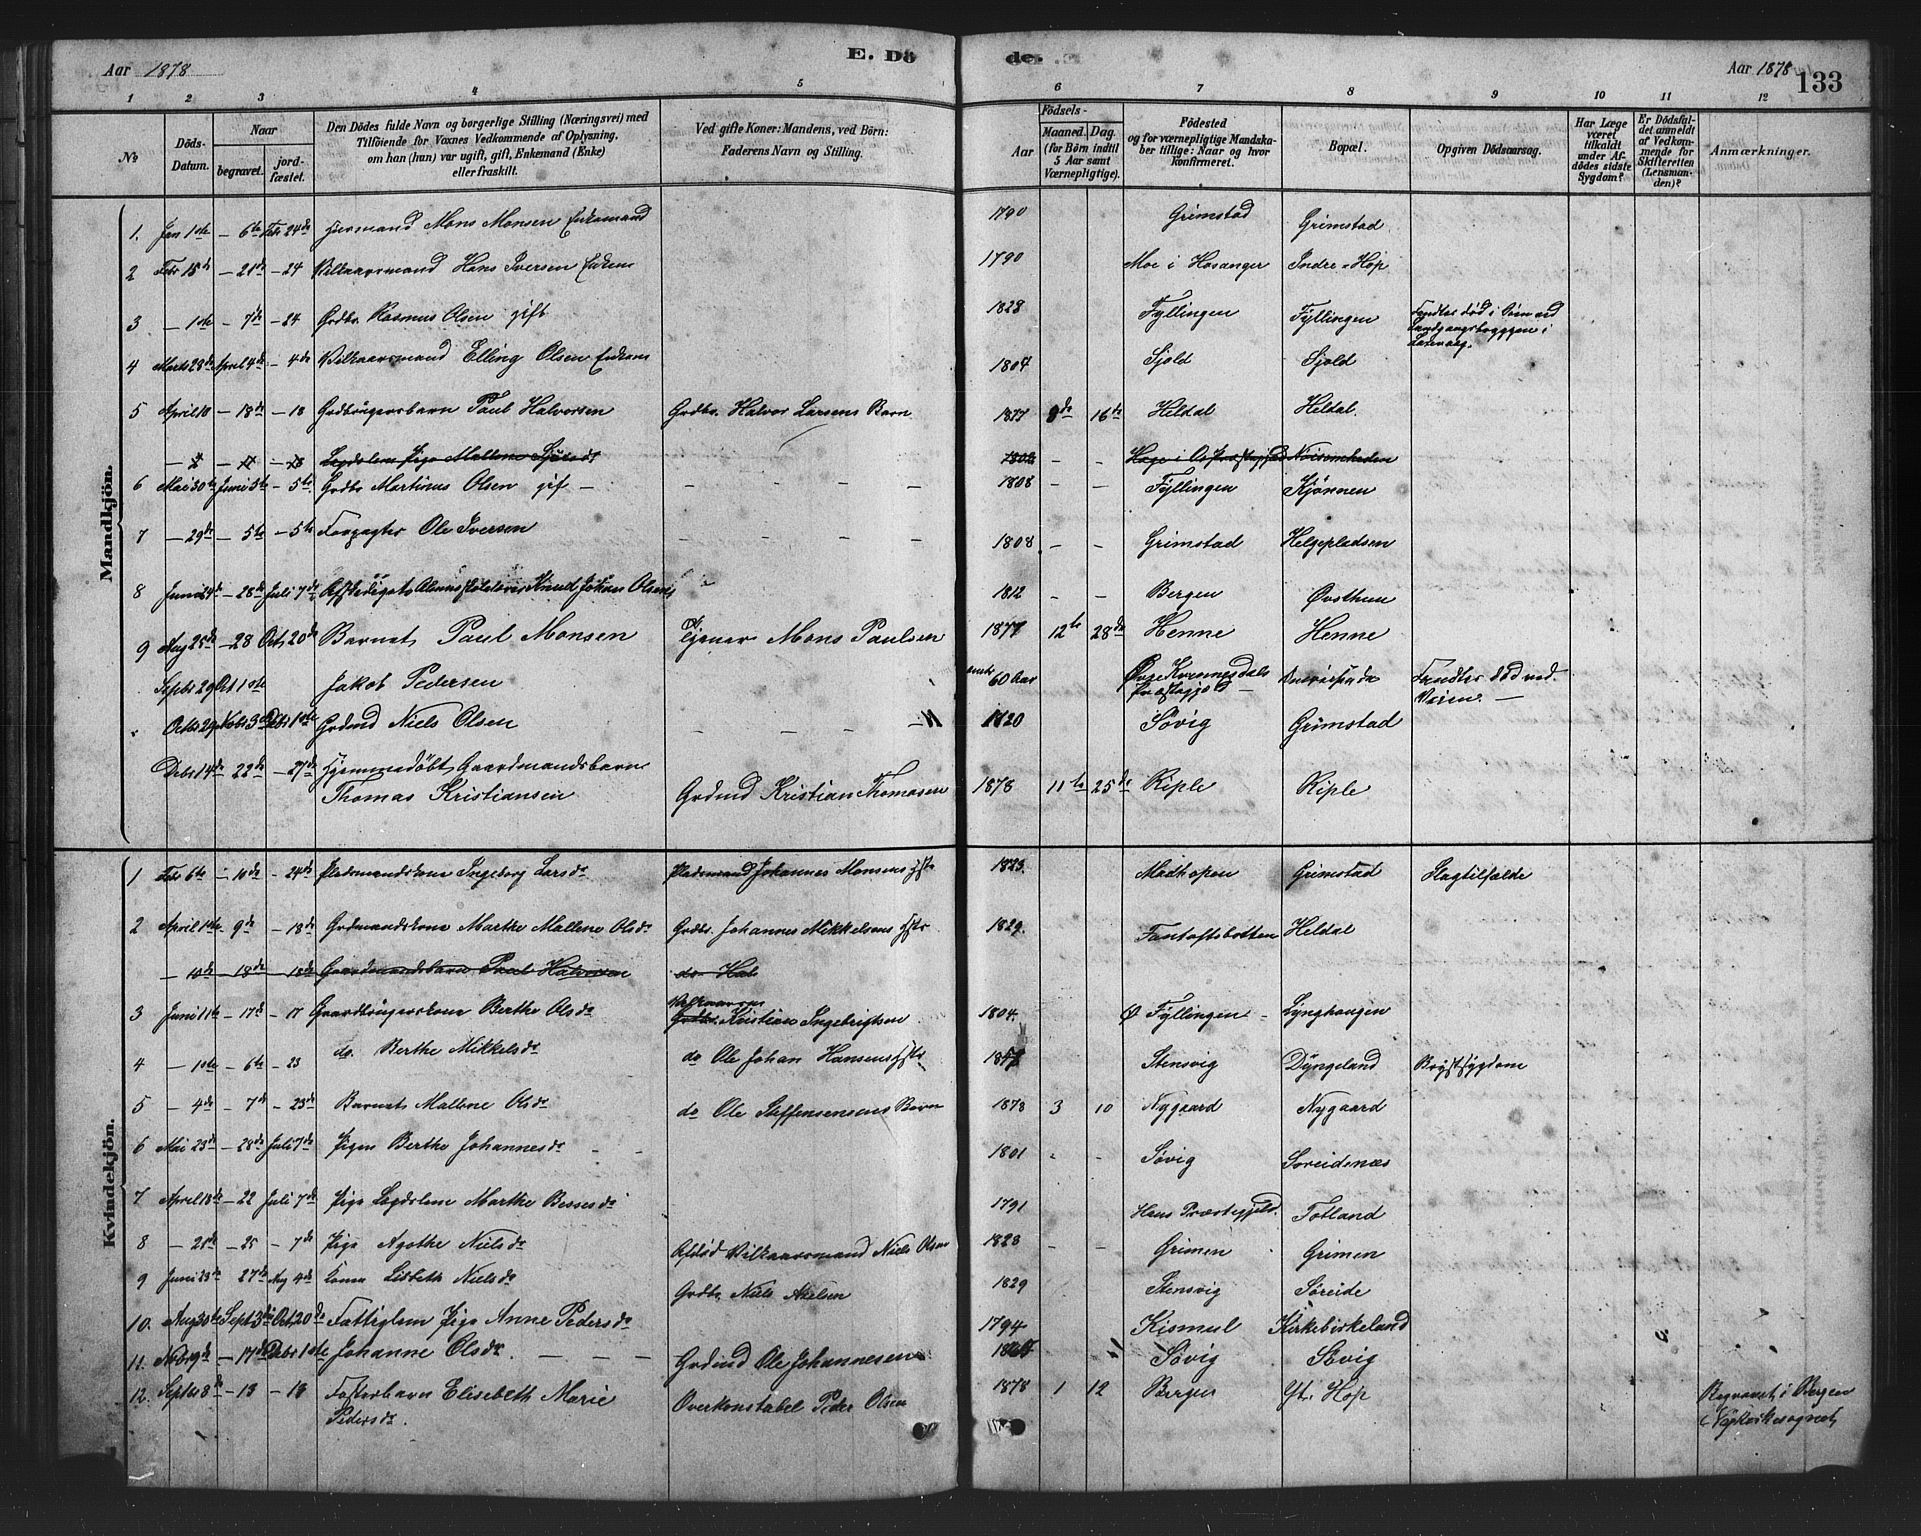 Aar 1878
E. Dö
de.
Aar 1878
133
1 2 3 4 5 6 7 8 9 10 11 12
No
Döds-
Datum.
Naar
begravet.
jord-
fæstet.
Den Dödes fulde Navn og borgerlige Stilling (Næringsvei) med
Tilföiende for Voxnes Vedkommende af Oplysning,
om han (hun) var ugift, gift, Enkemand (Enke)
eller fraskilt.
Ved gifte Koner: Mandens, ved Börn:
Faderens Navn og Stilling.
Födsels-
Aar
Maaned. Dag.
(for Börn indtil
5 Aar samt
Værnepligtige).
Födested
og for værnepligtige Mandska-
ber tillige: Naar og hvor
konfirmeret.
Bopæl.
Opgiven Dödsaarsag.
Har Læge
været
tilkaldt
under Af-
dödes sidste
Sygdom?
Er Dödsfal-
det anmeldt
af Vedkom-
mende for
Skifteretten
(Lensman-
den)?
Anmærkninger.
Mandkjön.
1. Jan 1ste – 6te Febr 24de Mons Monsen Enkemand 1790 Grimstad Grimstad
2 Febr 15de – 21de – 24 Vilkaarsmand Hans Iversen Enkem 1790 Moe i Hosanger Indre Hop
3 – 1ste – 7de – 24 Grdbr. Rasmus Olsen gift 1828 Fyllingen Fyllingen Fundtes död i Söen ved
Landgangsbryggen i
4 Marts 28de April 4de – 4de Vilkaarsmand Elling Olsen Enkem 1804 Sjold Sjold
5 April 10 – 18de – 18 Grdbrügersbarn Paul Halvorsen Grdbr. Halvor Larsens Barn 1877 8de 16de Heldal Heldal.
Legdslem Pige Mallene 1802 – –
6 Mai 30te Juni 5te – 5te Grdbr Martinus Olsen gif – – – – – 1808 – – Fyllingen Kjönnen
7 – 29de – 5te – 5te Forpagter Ole Iversen – – – – 1808 – – Grimstad Helgepladsen
8 Juni 24de – 28de Juli 7de Knud Johan Olsen 1812 – – Bergen Övsthun
9 Aug 25de – 28 Octr 20de Barnet Paul Monsen Tjener Mons Paulsen 1877 12te 28de Henne Henne
Septbr 29 Oct 1ste Jakob Pedersen 60 Aar Övre Kvinnesdals
Præstegjeld Fundtes död ved
Veien. –
Octbr 29 Novbr 3de Debr 1ste Grdmd Niels Olsen – – – 1820 Sövig Grimstad
Debr 14de 22de – 27de Hjemmedöbt Gaardmandsbarn
Thomas Kristiansen Grdmd Kristian Thomasen 1878 11te 25de Riple Riple
Kvindekjön.
1 Febr 6te – 10de – 24de Pladsmandskone Ingeborg Larsdr Pladsmand Johannes Monsens Hstr 1823. Madhopen Grimstad Slagtilfælde
2 April 1ste – 9de – 18de Grdmandskone Marthe Mallene Olsdr Grdbr. Johannes Mikkelsens Hstr 1829. Fantoftsbotten Heldal
– 10de – 18de – 18de Gaardmandsbarn Paul Halvorsen do Hal
3 Juni 11te – 17de – 17 Gaardbrugerskone Berthe Olsdr Vilkaarsm
Grdbr. Kristian Ingebrigtsen 1804. Ö Fyllingen – Lynghaugen
4 – 1ste – 6te – 23 do. Berthe Mikkelsdr do Ole Johan Hansens Hstr Stensvig Dyngeland Brystsygdom
5 – 4de – 7de – 23de Barnet Mallene Olsdr do Ole Steffensens Barn 1878 3 10 Nygaard Nygaard
6 Mai 23de – 28de Juli 7de Pigen Berthe Johannesdr – – 1801 – – Sövig Söreidenæs
7 April 18de – 22 Juli 7de Pige Legdslem Marthe Bessesdr 1791 Haus Præstegjeld. Totland
8 – 21de – 25 – 7de Pige Agothe Nielsdr Afdöd Vilkaarsmand Niels Olsen 1823 – – Grimen Grimen
9 Juni 23de 27de Aug 4de Kone Lisbeth Nielsdr Grdbr. Niels Axelsen 1829 Stensvig Söreide
10. Aug 30te Septr 3die Oct 20de Fattiglem Pige Anne Pedersdr 1794 Kismul Kirkebirkeland
11. Novbr 9de – 17de Debr 1ste Johanne Olsdr – – – Grdmd Ole Johannesen Sövig Sövig
12. Septbr 8de – 13 – 13 Fosterbarn Elisebeth Marie
Pedersdr. Overkonstabel Peder Olsen 1878 1 12 Bergen Yt. Hop Begravet i Bergen
Nykirkesognet